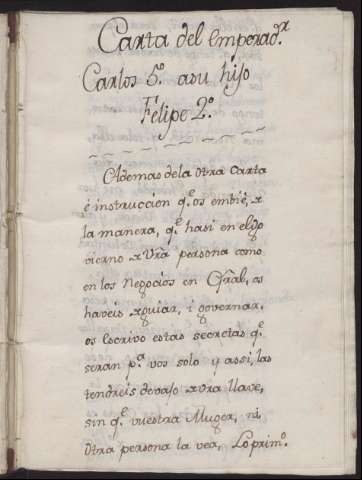 Carta del emperad.r
Carlos 5.º a su hijo
Felipe 2.º
Ademas dela Otra Carta
é instruccion q.e os embiè, x
la manera, q.e hasi en el go
vierno x Vrã persona como
en los Negocios en Gr̃al, os
haveis x guiar, i governar,
os Escrivo estas secretas q.e
seran p.a vos solo y assi, las
tendreis devajo x vra llave,
sin q.e vuestra Muger, ni
Otra persona la vea, Lo prim.o